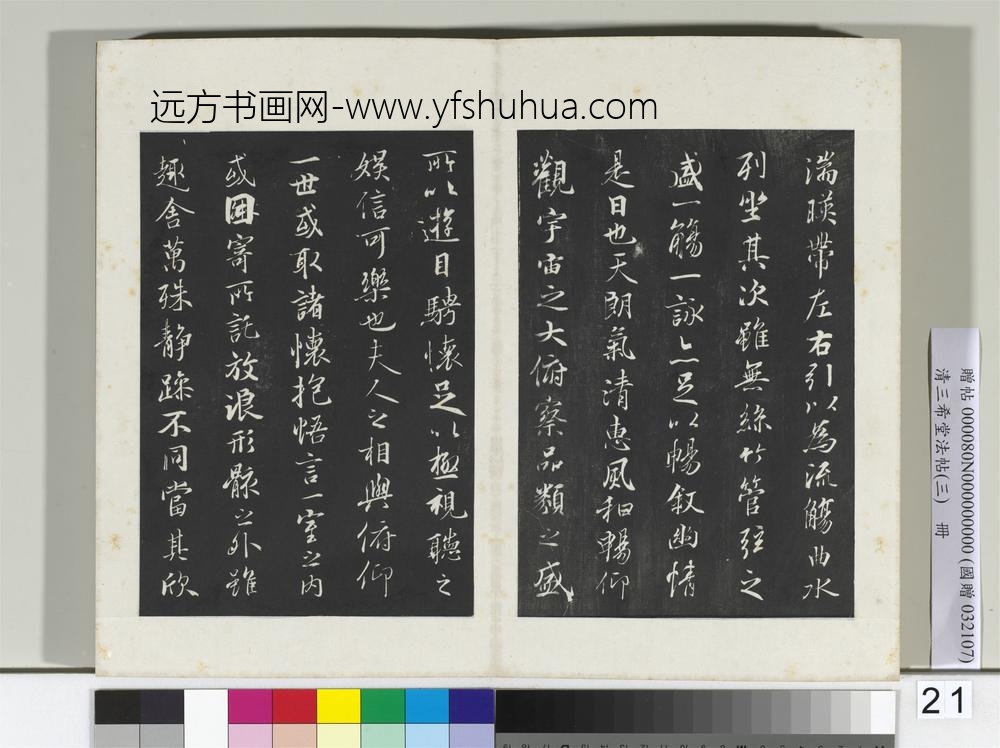 远方书画网-www.yfshuhua.com
湍暎帶左右引以為流觴曲水
列坐其次雖無絲竹管弦之
盛一觴一詠亦足以暢叙幽情
是日也天朗氣清惠風和暢仰
觀宇宙之大俯察品類之盛
所以遊目騁懷足以極視聽之
娛信可樂也夫人之相與俯仰
一世或取諸懷抱悟言一室之內
或因寄所託放浪形骸之外雖
趣舍萬殊靜躁不同當其欣
贈帖 0000080N000000000 (國贈 032107)
清三希堂法帖(三) 冊
21